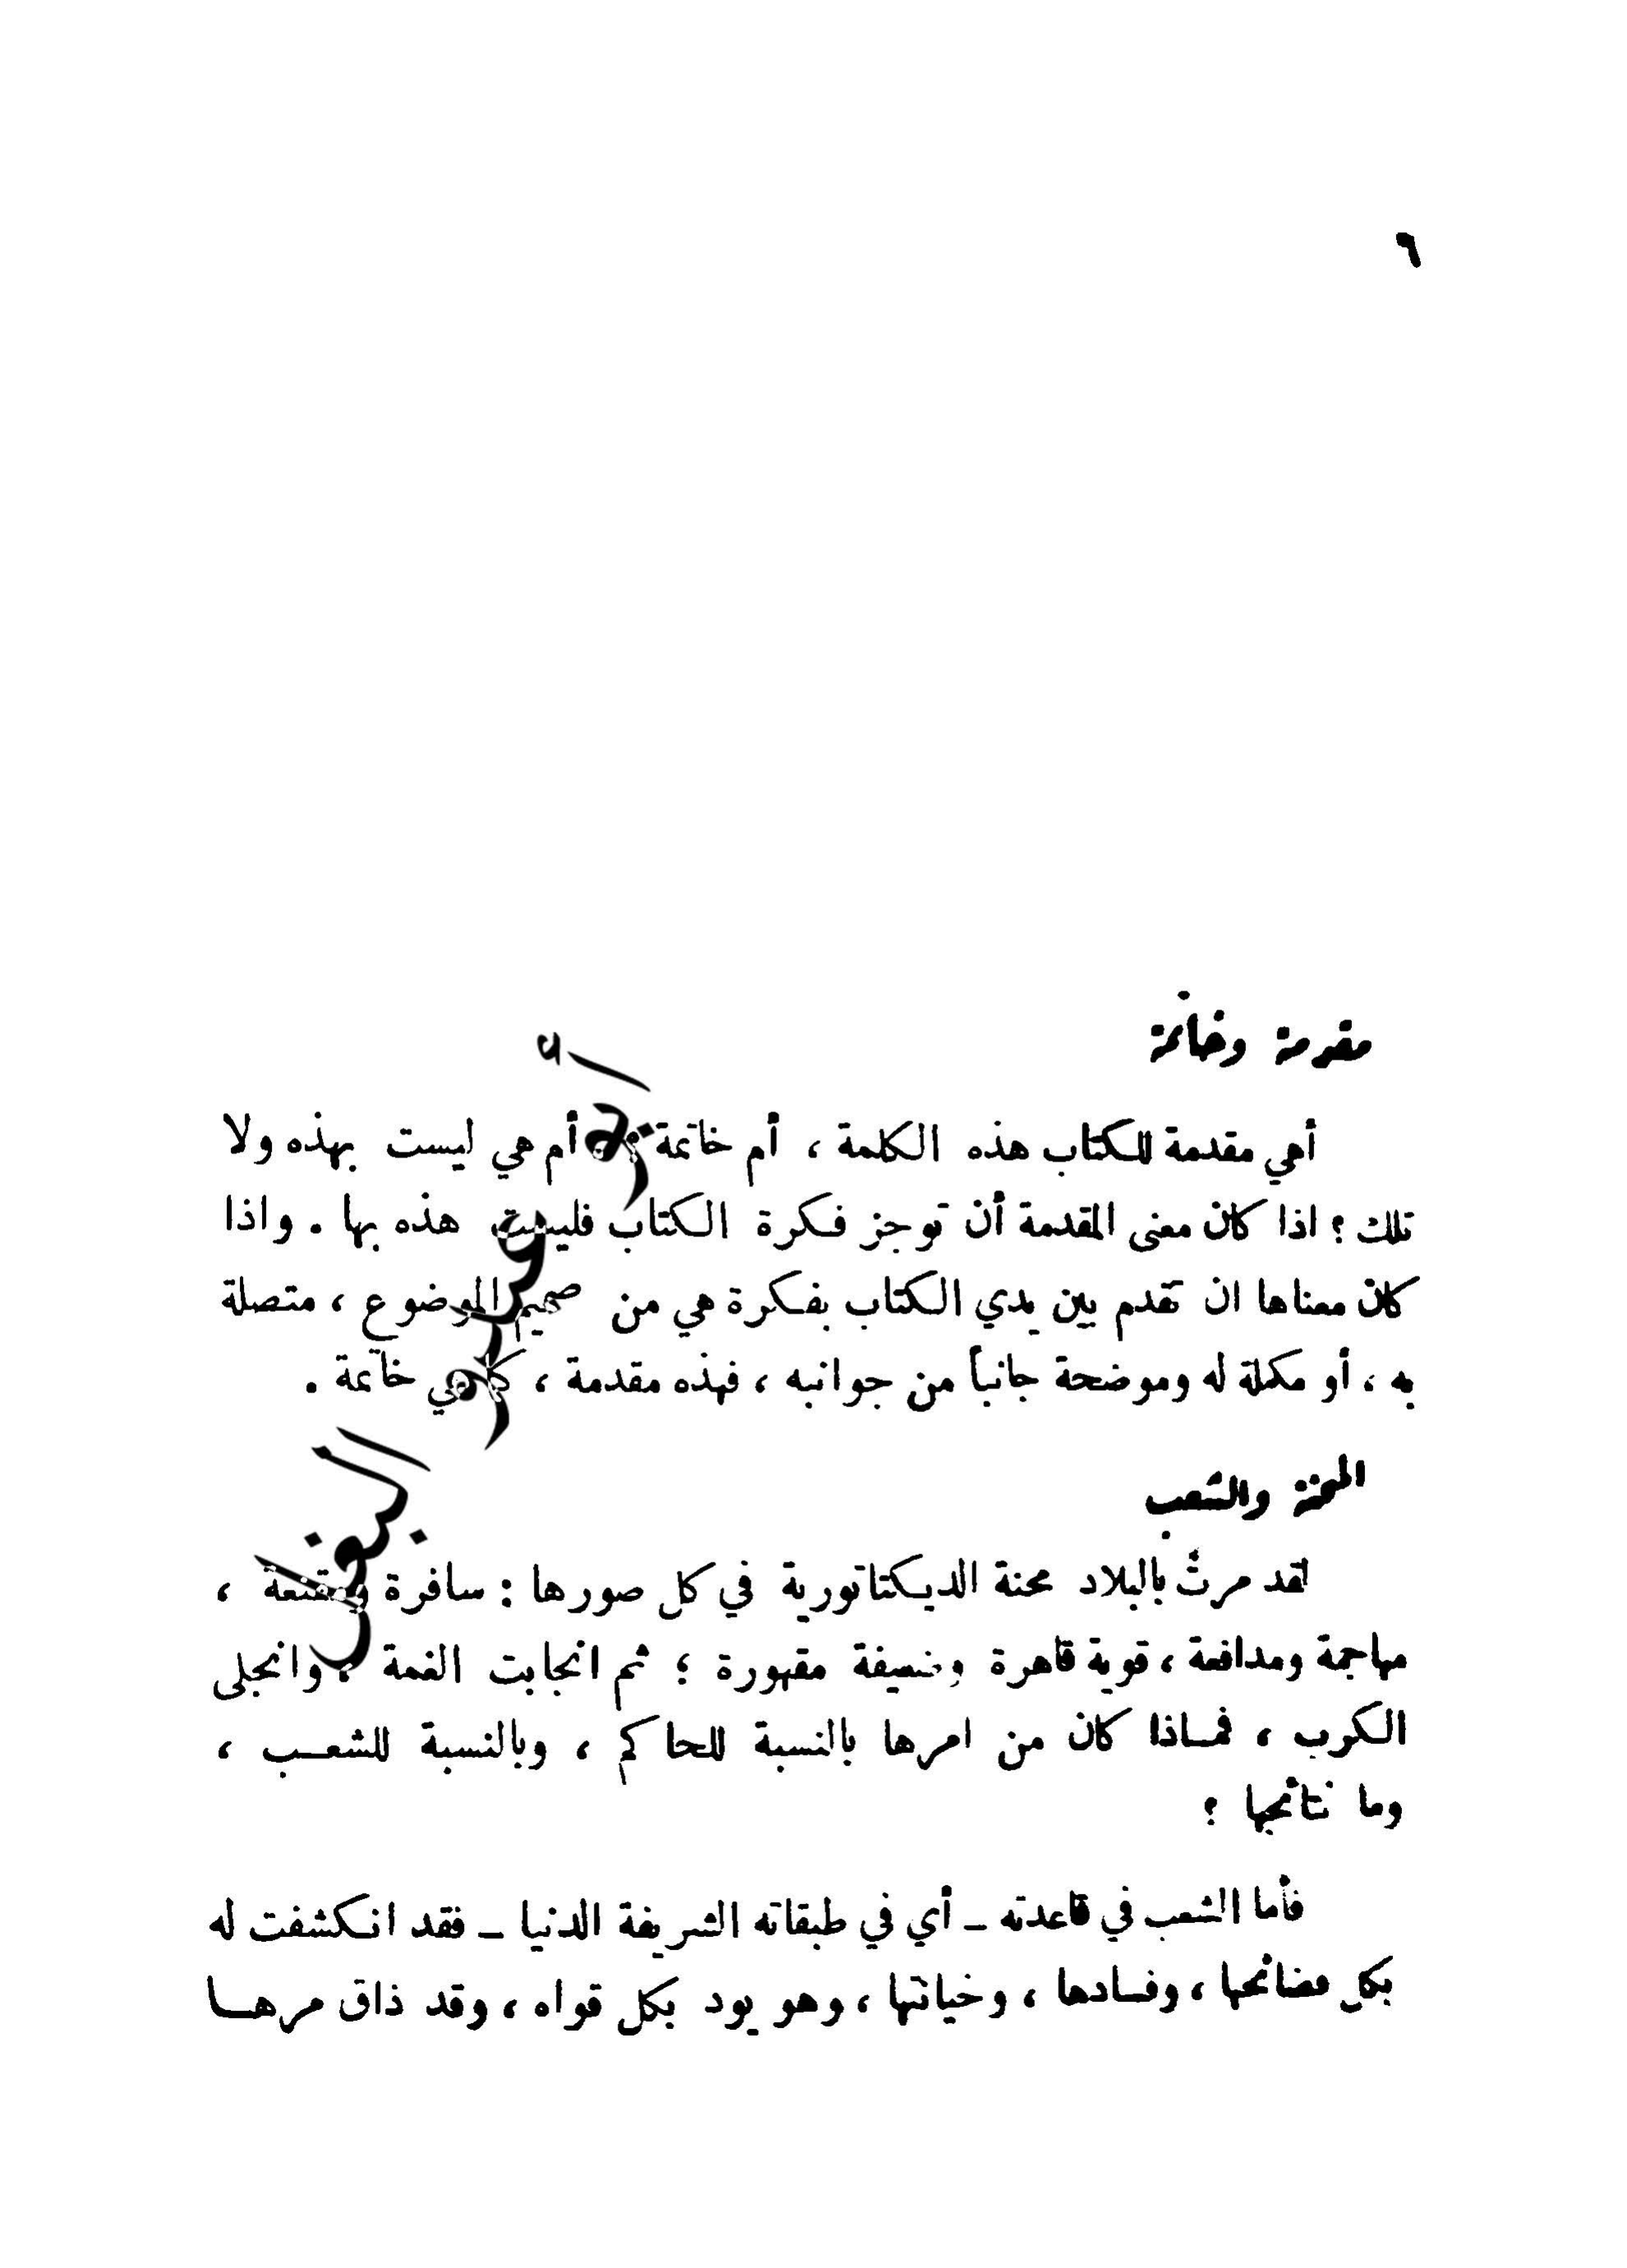 ٦
مقدمة وخاتمة
أهي مقدمة للكتاب هذه الكلمة ، أم خاتمة ؟ أم هي ليست بهذه ولا
تلك ؟ اذا كان معنى المقدمة أن توجز فكرة الكتاب فليست هذه بها . واذا
كان معناها ان تقدم بين يدي الكتاب بفكرة هي من صميم الموضوع ، متصلة
به ، أو مكملة له وموضحة جانباً من جوانبه ، فهذه مقدمة ، كما هي خاتمة .
المحنة والشعب
لقد مرتْ بالبلاد محنة الديكتاتورية في كل صورها : سافرة ومقنعة ،
مهاجمة ومدافعة ، قوية قاهرة وضعيفة مقهورة ؛ ثم انجابت الغمة ، وانجلى
الكرب ، فماذا كان من امرها بالنسبة للحاكم ، وبالنسبة للشعب ،
وما نتائجها ؟
فأما الشعب في قاعدته – أي في طبقاته الشريفة الدنيا – فقد انكشفت له
بكل فضائحها ، وفسادها ، وخيانتها ، وهو يود بكل قواه ، وقد ذاق مرها